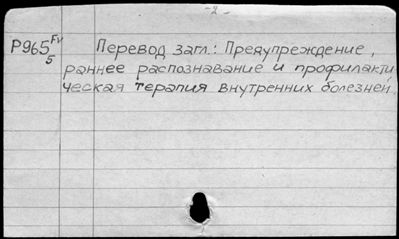 - 2 -
P965 Fv Перевод загл.: Предупреждение,
5 раннее распознавание и профилакти-
ческая терапия внутренних болезней.